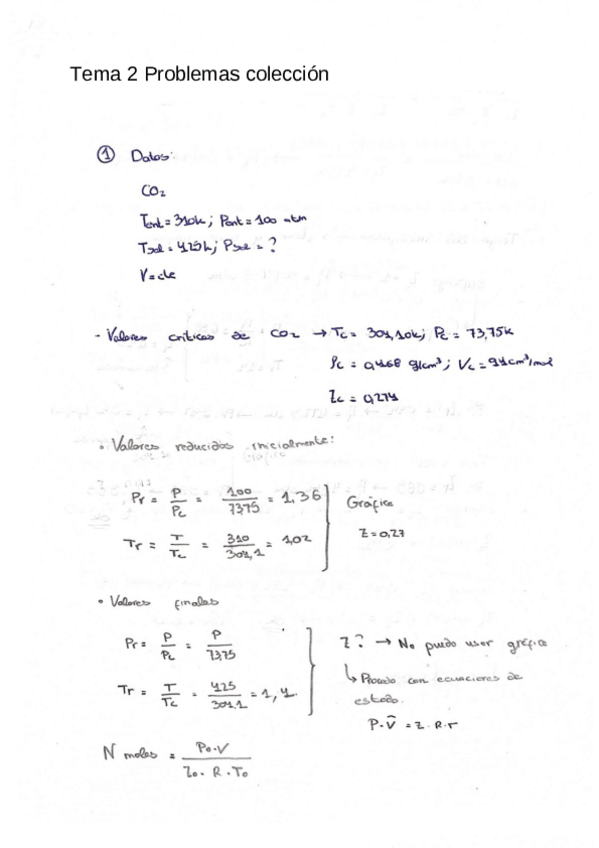 Tema 2 Problemas colección
① Datos:
CO₂
Tent = 310k ; Pent = 100 atm
Tsal = 425k ; Psal = ?
V = cte
- Valores críticos de CO₂ → Tc = 304,10k; Pc = 73,75K
ρc = 0,468 g/cm³ ; Vc = 94cm³/mol
Zc = 0,274
• Valores reducidos inicialmente:
Pr = P/Pc = 100/73,75 = 1,36
Gráfica
Tr = T/Tc = 310/304,1 = 1,02
Z = 0,27
• Valores finales
Pr = P/Pc = P/73,75
Z? → No puedo usar gráfica
Tr = T/Tc = 425/304,1 = 1,4.
↳ Procedo con ecuaciones de
estado.
P·Ṽ = Z·R·T
N moles = Po·V / Zo·R·To